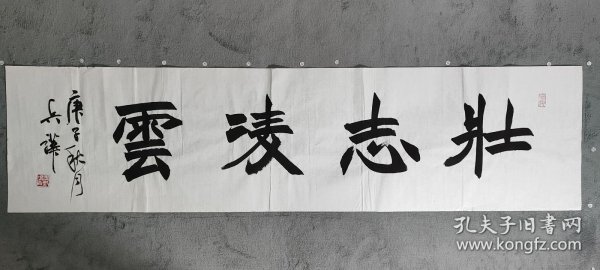 壯志凌雲
庚子秋月
孔夫子旧书网
www.kongfz.com